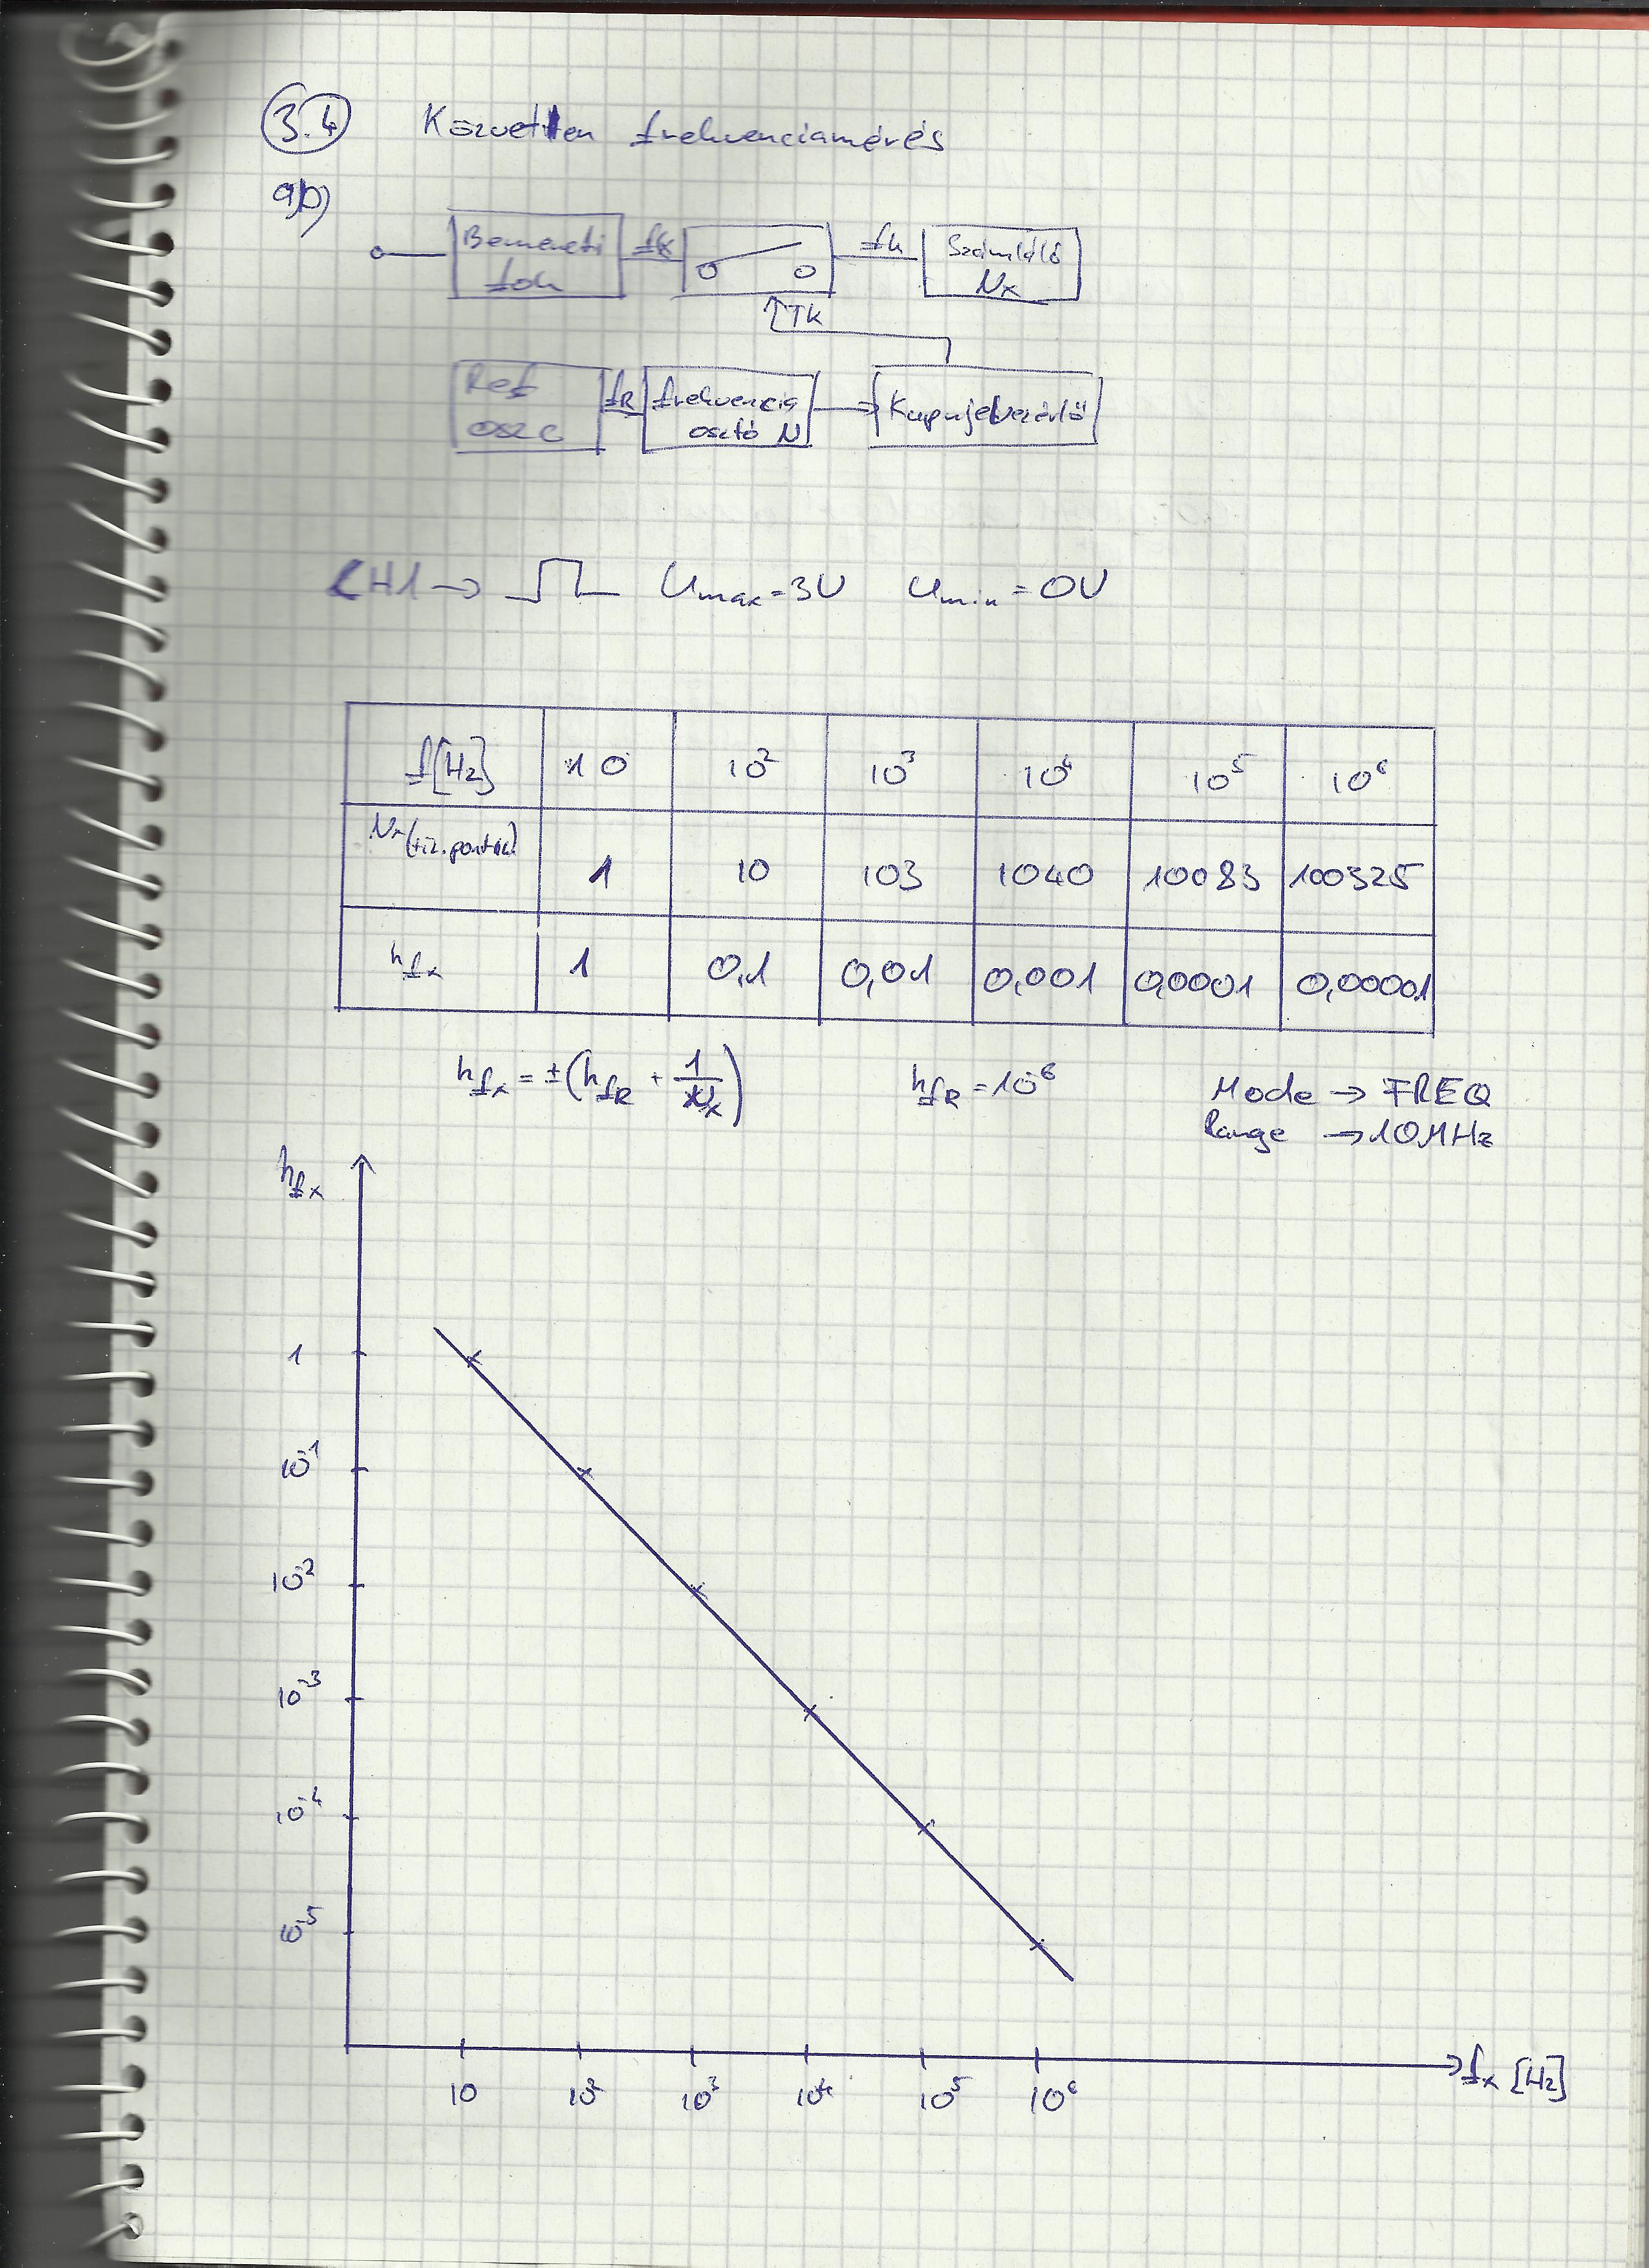 3.4 Közvetlen frekvenciamérés
a,b)
Bemeneti fok fx fk Számláló Nx
TK
Ref osc fR frekvencia osztó N Kapujelvezérlő
CH1 → Umax = 3V Umin = 0V
f[Hz] 10 10² 10³ 10⁴ 10⁵ 10⁶
Nx (tiz.pont nél.) 1 10 103 1040 10083 100325
hfx 1 0,1 0,01 0,001 0,0001 0,00001
hfx = ±(hfR + 1/Nx) hfR = 10⁻⁶ Mode → FREQ
Range → 10MHz
hfx
1
10⁻¹
10⁻²
10⁻³
10⁻⁴
10⁻⁵
10 10² 10³ 10⁴ 10⁵ 10⁶ fx [Hz]